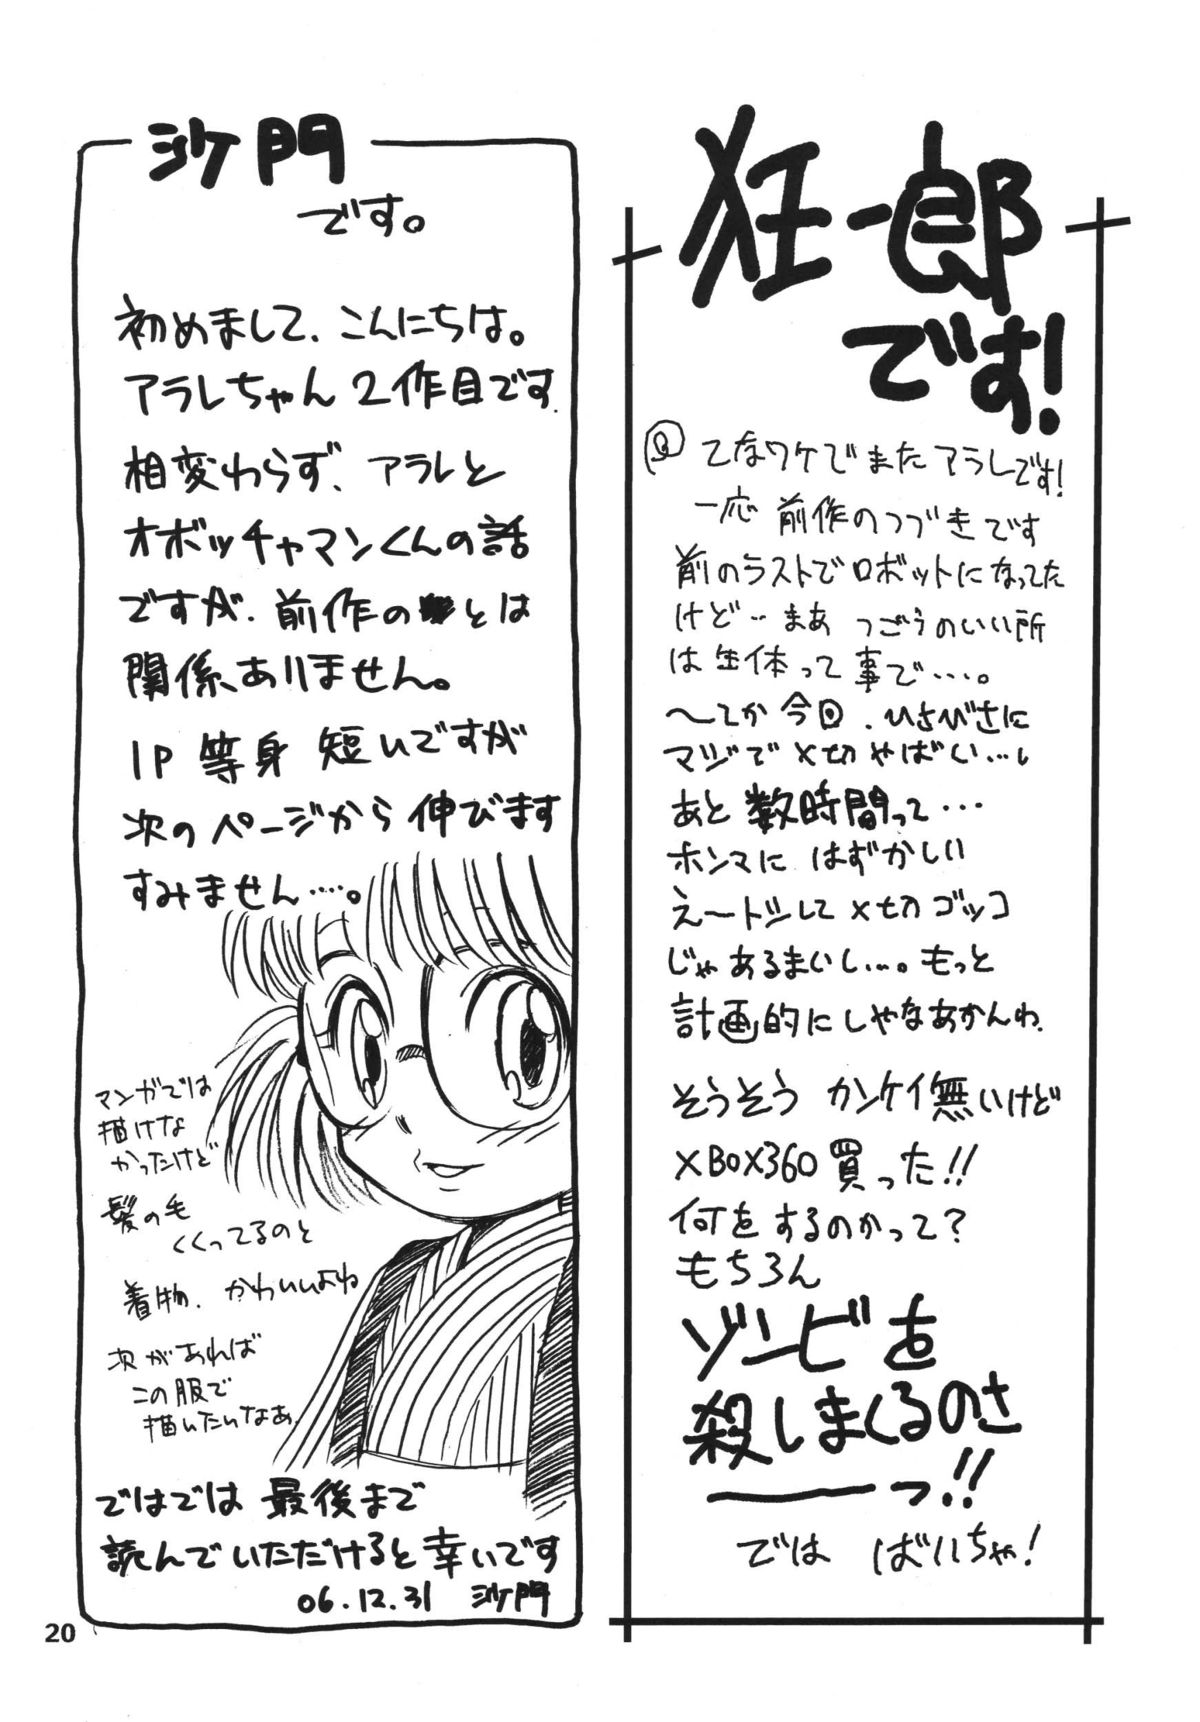 狂一郎
です!
てなワケでまたアラレです!
一応 前作のつづきです
前のラストでロボットになってた
けど‥まあ つごうのいい所
は生体って事で‥‥。
〜てか今回、ひさびさに
マジで〆切やばい…し
あと数時間って…
ホンマに はずかしい
え〜トシして〆切ゴッコ
じゃあるまいし…。もっと
計画的にしゃなあかんわ、
そうそう カンケイ無いけど
XBOX360買った!!
何をするのかって?
もちろん
ゾンビを
殺しまくるのさ
――っ!!
では ばいちゃ!
沙門
です。
初めまして、こんにちは。
アラレちゃん 2作目です。
相変わらず、アラレと
オボッチャマンくんの話
ですが、前作のとは
関係、ありません。
1P 等身 短いですが
次のページから伸びます
すみません‥‥。
マンガでは
描けな
かったけど
髪の毛
くくってるのと
着物、かわいいよね
次があれば
この服で
描いたいなあ、
ではでは 最後まで
読んでいただけると幸いです
06.12.31 沙門
20